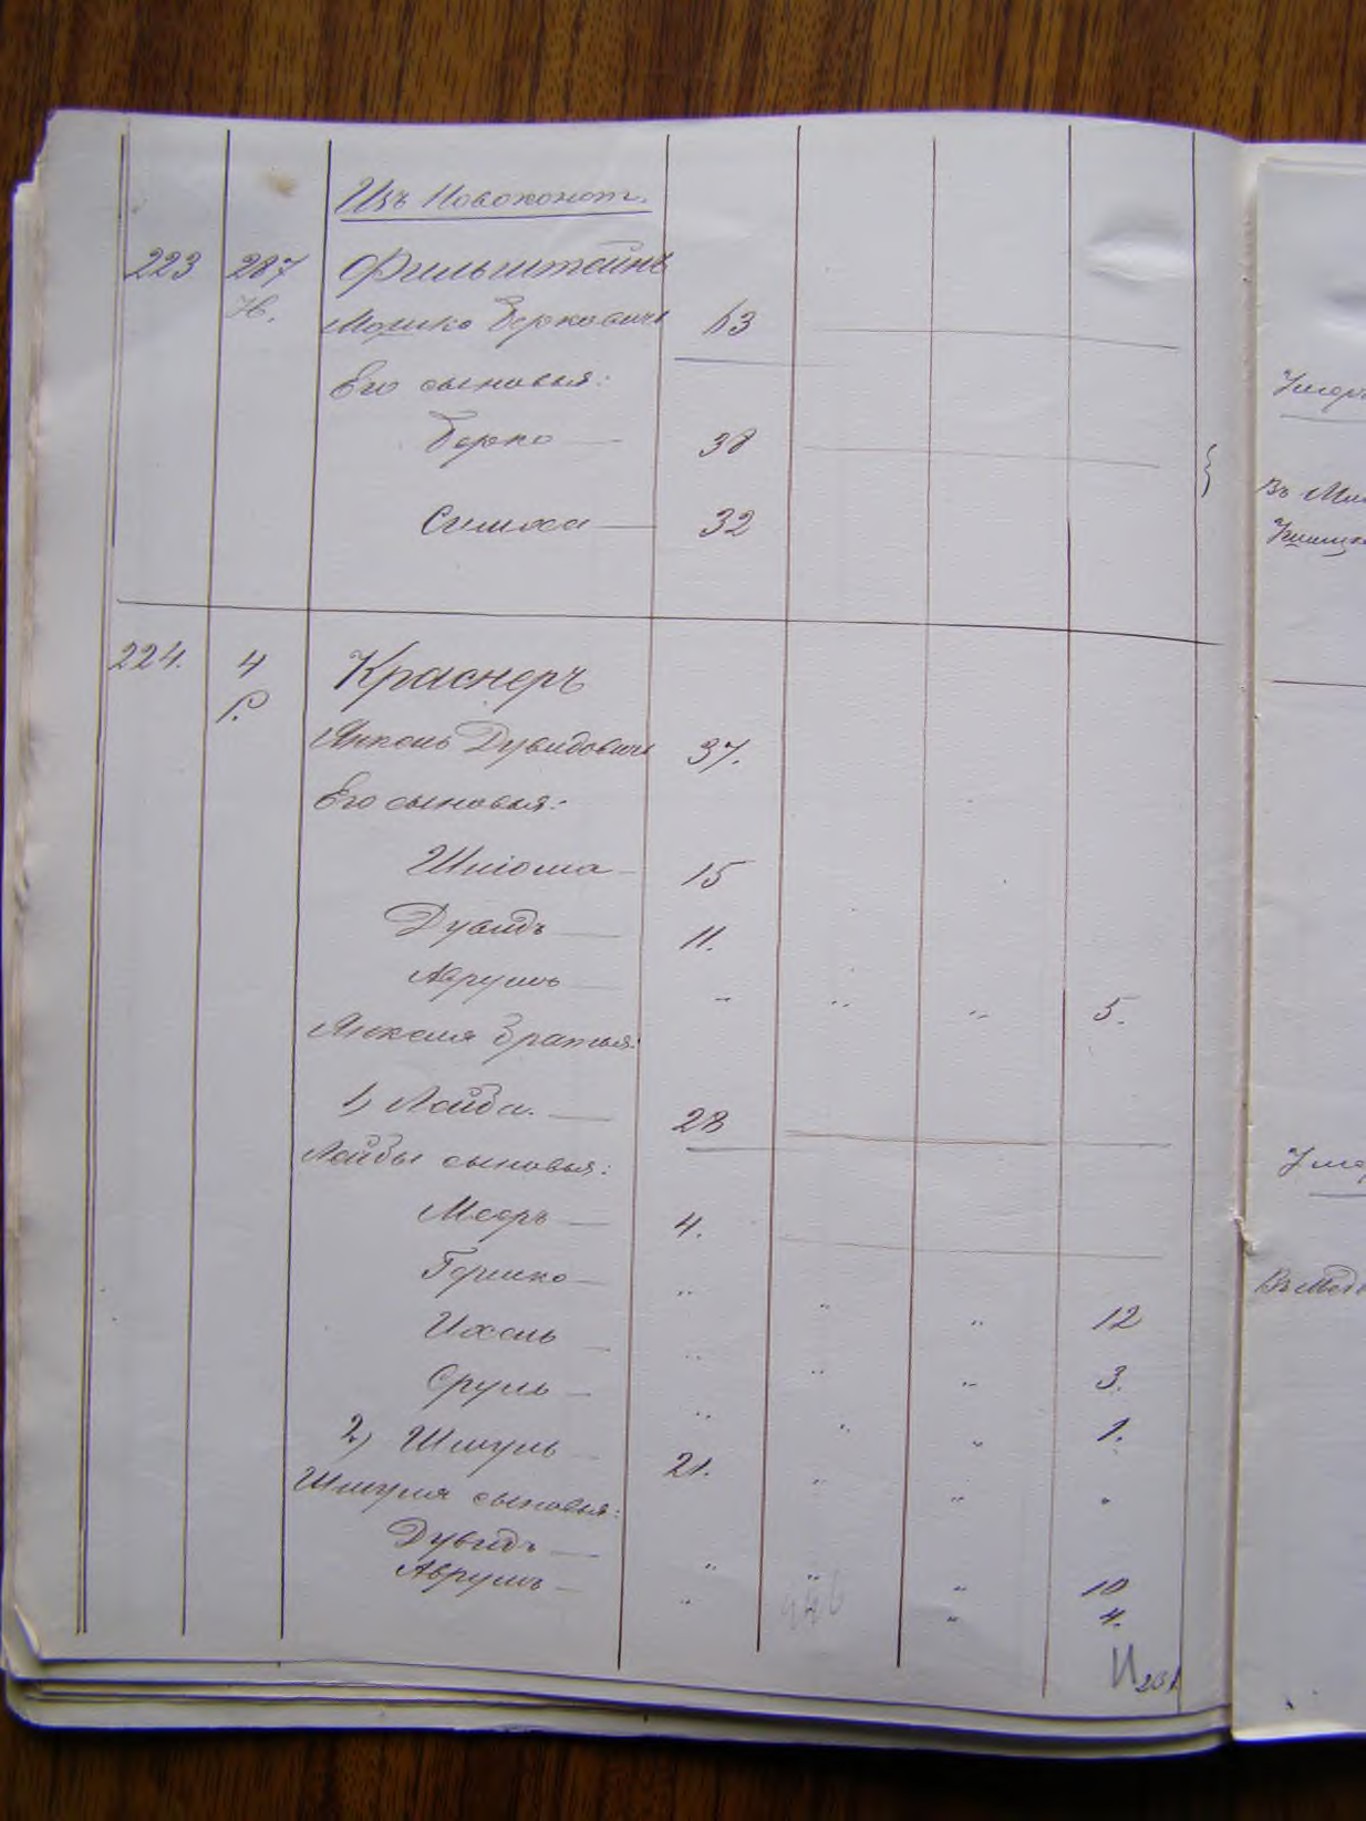 Изъ Новоконст.
223 287 Фильштейнъ
Н.
Мошко Берковичъ 63
Его сыновья:
Берко 38
Симха 32
224. 4 Краснеръ
Р.
Янкель Дувидовичъ 37.
Его сыновья:
Шлiома 15
Дувидъ 11.
Аврумъ " " " 5.
Янкеля братья:
1) Лейба. 28
Лейбы сыновья:
Мееръ 4.
Гершко " " " 12
Ихель " " " 3.
Сруль " " " 1.
2) Шмуль 21. " " "
Шмуля сыновья:
Дувидъ " " " 10
Аврумъ " " 4.
Умер
Въ
Умер
Въ Медж